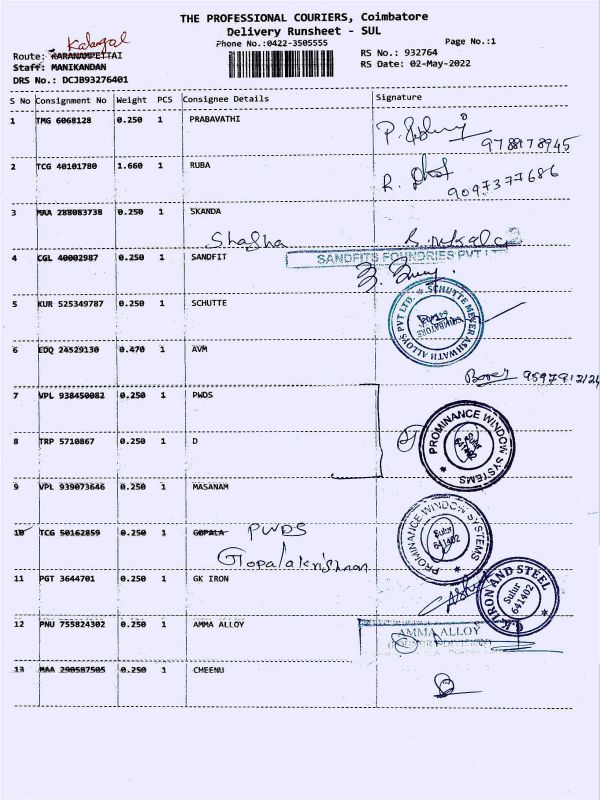 THE PROFESSIONAL COURIERS, Coimbatore
Delivery Runsheet - SUL
Phone No.:0422-3505555
Page No.:1
Kalangal
Route: KARANAMPETTAI
RS No.: 932764
Staff: MANIKANDAN
RS Date: 02-May-2022
DRS No.: DCJB93276401
S No Consignment No Weight PCS Consignee Details Signature
1 TMG 6068128 0.250 1 PRABAVATHI
9788178945
2 TCG 40101780 1.660 1 RUBA
9097377686
3 MAA 288083738 0.250 1 SKANDA
Shasha
4 CGL 40002987 0.250 1 SANDFIT
SANDFITS FOUNDRIES PVT LTD
5 KUR 525349787 0.250 1 SCHUTTE
SCHUTTE MEYER ASHWATH ALLOYS PVT LTD.
COIMBATORE
6 EDQ 24529130 0.470 1 AVM
7 VPL 938450082 0.250 1 PWDS
8 TRP 5710867 0.250 1 D
PROMINANCE WINDOW SYSTEMS
Sulur
641402
9 VPL 939073646 0.250 1 MASANAM
10 TCG 50162859 0.250 1 GOPALA PWDS
Gopalakrishnan
PROMINANCE WINDOW SYSTEMS
Sulur
641402
11 PGT 3644701 0.250 1 GK IRON
G.K. IRON AND STEEL
Sulur
641402
12 PNU 755824302 0.250 1 AMMA ALLOY
AMMA ALLOY
13 MAA 290587505 0.250 1 CHEENU